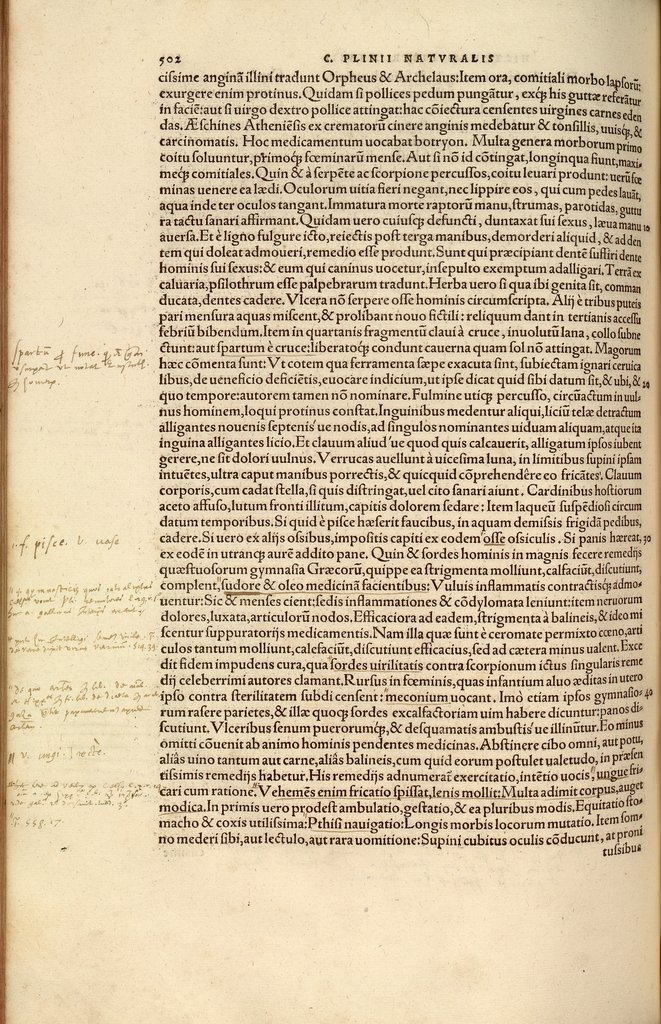 502 C. PLINII NATVRALIS
cißime anginā illini tradunt Orpheus & Archelaus:Item ora, comitiali morbo lapsorū;
exurgere enim protinus. Quidam si pollices pedum pungātur, exq́; his guttæ referātur
in faciē:aut si uirgo dextro pollice attingat:hac cōiectura censentes uirgines carnes eden
das. Æschines Atheniēsis ex crematorū cinere anginis medebatur & tonsillis, uuisq́;, &
carcinomatis. Hoc medicamentum uocabat botryon. Multa genera morborum primo
coitu soluuntur, primoq́; fœminarū mense. Aut si nō id cōtingat, longinqua fiunt, maxi-
meq́; comitiales. Quin & à serpēte ac scorpione percussos, coitu leuari produnt: uerū fœ
minas uenere ea lædi. Oculorum uitia fieri negant, nec lippire eos, qui cum pedes lauāt,
aqua inde ter oculos tangant. Immatura morte raptorū manu, strumas, parotidas, guttu
ra tactu sanari affirmant. Quidam uero cuiusq́; defuncti, duntaxat sui sexus, læua manu 10
auersa. Et è ligno fulgure icto, reiectis post terga manibus, demorderi aliquid, & ad den
tem qui doleat admoueri, remedio esse produnt. Sunt qui præcipiant dentē suffiri dente
hominis sui sexus:& eum qui caninus uocetur, insepulto exemptum adalligari. Terrā ex
caluaria, psilothrum esse palpebrarum tradunt. Herba uero si qua ibi genita sit, comman
ducata, dentes cadere. Vlcera nō serpere osse hominis circumscripta. Alij è tribus puteis
pari mensura aquas miscent, & prolibant nouo fictili: reliquum dant in tertianis accessu
febriū bibendum. Item in quartanis fragmentū claui à cruce, inuolutū lana, collo subne
ctunt:aut spartum è cruce:liberatoq́; condunt cauerna quam sol nō attingat. Magorum
hæc cōmenta sunt: Vt cotem qua ferramenta sæpe exacuta sint, subiectam ignari ceruica
libus, de ueneficio deficiētis, euocare indicium, ut ipse dicat quid sibi datum sit, & ubi, & 20
quo tempore:autorem tamen nō nominare. Fulmine utiq́; percusso, circūactum in uul-
nus hominem, loqui protinus constat. Inguinibus medentur aliqui, liciū telæ detractum
alligantes nouenis septenis´ue nodis, ad singulos nominantes uiduam aliquam, atque ita
inguina alligantes licio. Et clauum aliud´ue quod quis calcauerit, alligatum ipsos iubent
gerere, ne sit dolori uulnus. Verrucas auellunt à uicesima luna, in limitibus supini ipsam
intuētes, ultra caput manibus porrectis, & quicquid cōprehendêre eo fricātes. Clauum
corporis, cum cadat stella, si quis distringat, uel cito sanari aiunt. Cardinibus hostiorum
aceto affuso, lutum fronti illitum, capitis dolorem sedare: Item laqueū suspēdiosi circum
datum temporibus. Si quid è pisce hæserit faucibus, in aquam demissis frigidā pedibus,
cadere. Si uero ex alijs ossibus, impositis capiti ex eodem osse ossiculis. Si panis hæreat, 30
ex eodē in utranq́; aurē addito pane. Quin & sordes hominis in magnis fecere remedijs
quæstuosorum gymnasia Græcorū, quippe ea strigmenta molliunt, calfaciūt, discutiunt,
complent, sudore & oleo medicinā facientibus: Vuluis inflammatis contractisq́; admo-
uentur: Sic & menses cient:sedis inflammationes & cōdylomata leniunt:item neruorum
dolores, luxata, articulorū nodos. Efficaciora ad eadem, strigmenta à balineis, & ideo mi
scentur suppuratorijs medicamentis. Nam illa quæ sunt è ceromate permixto cœno, arti
culos tantum molliunt, calefaciūt, discutiunt efficacius, sed ad cætera minus ualent. Exce
dit fidem impudens cura, qua sordes uirilitatis contra scorpionum ictus singularis reme
dij celeberrimi autores clamant. Rursus in fœminis, quas infantium aluo æditas in utero
ipso contra sterilitatem subdi censent: meconium uocant. Imò etiam ipsos gymnasio- 40
rum rasere parietes, & illæ quoq́; sordes excalfactoriam uim habere dicuntur:panos di-
scutiunt. Vlceribus senum puerorumq́;, & desquamatis ambustis´ue illinūtur. Eo minus
omitti cōuenit ab animo hominis pendentes medicinas. Abstinēre cibo omni, aut potu,
aliâs uino tantum aut carne, aliâs balineis, cum quid eorum postulet ualetudo, in præsen
tissimis remedijs habetur. His remedijs adnumerāt exercitatio, intētio uocis, ungue fri-
cari cum ratione. Vehemēs enim fricatio spissat, lenis mollit: Multa adimit corpus, auget
modica. In primis uero prodest ambulatio, gestatio, & ea pluribus modis. Equitatio sto-
macho & coxis utilissima: Pthisi nauigatio: Longis morbis locorum mutatio. Item som-
no mederi sibi, aut lectulo, aut rara uomitione: Supini cubitus oculis cōducunt, at proni
tussibus
f. pisce. v. vase
558. 17.